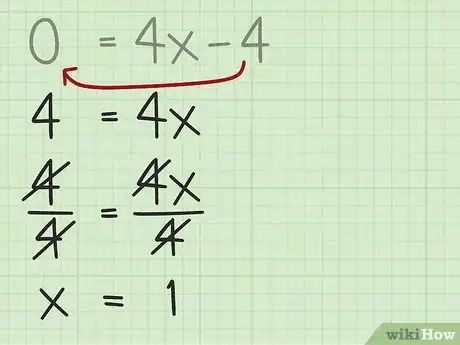 0 = 4x - 4
4 = 4x
4/4 = 4x/4
x = 1
wikiHow